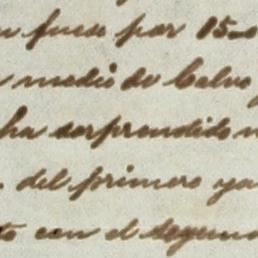 fuese por 15
medio de Calvo
ha sorprendido
del primero ya
con el segun